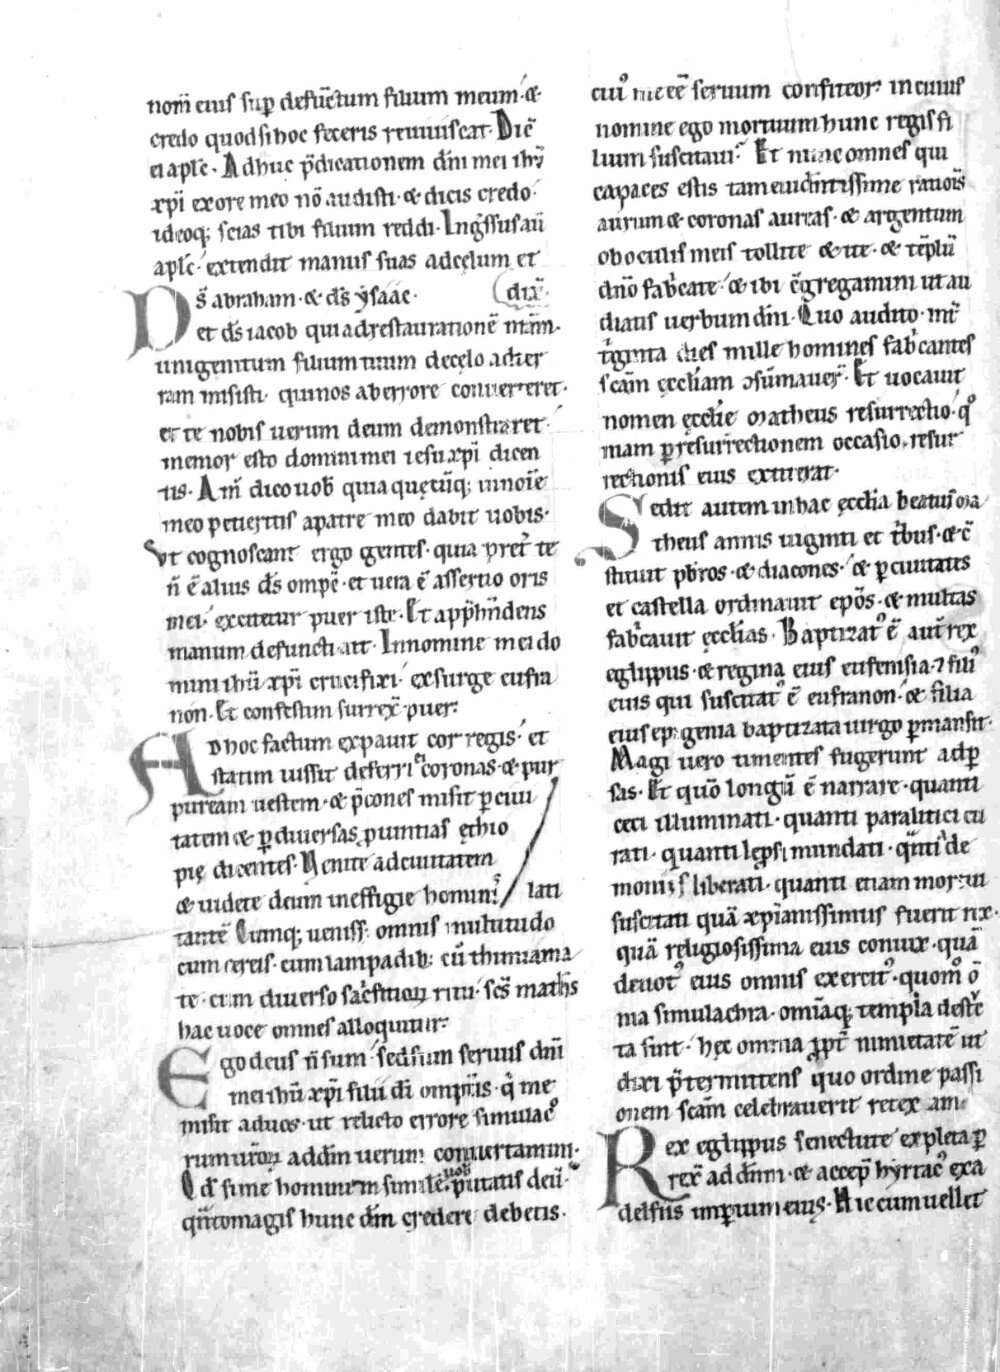 nom̄ eius sup̱ defūctum filium meum· &
credo quod si hoc feceris reuiuiscat· Dic̄
ei apl̄s· Adhuc p̄dicationem dn̄i mei ihū
xp̄i ex ore meo nō audisti· & dicis credo·
ideoq; scias tibi filium reddi· Ingr̄ssus aū
apl̄s· extendit manus suas ad cęlum et
Ds̄ abraham· & ds̄ ẏsaac· (dix̄·
et ds̄ iacob qui ad restaurationē n̄am·
unigenitum filium tuum de cęlo ad ter
ram misisti· qui nos ab errore conuerteret·
et te nobis uerum deum demonstraret·
memor esto domini mei iesu xp̄i dicen
tis· Am̄ dico uob̄ quia quęcūq; in noīe
meo petieritis a patre meo dabit uobis·
Vt cognoscant ergo gentes· quia pret̄ te
n̄ ē alius ds̄ omp̄s· et uera ē assertio oris
mei· excitetur puer iste· Et app̄hn̄dens
manum defuncti ait· In nomine mei do
mini ihū xp̄i crucifixi· exsurge eufra
non· Et confestim surrex̄ puer·
Ad hoc factum expauit cor regis· et
statim iussit deferri coronas· & pur
puream uestem· & p̄cones misit p̱ ciui
tatem & p̱ diuersas puintias ęthio
pię dicentes· Venite ad ciuitatem
& uidete deum in effigie hominis / lati
tantē Cumq; ueniss; omnis multitudo
cum cereis· cum lampadib; cū thimiama
te· cum diuerso sac̄ficiioꝝ ritu· sc̄s math̄s
hac uoce omnes alloquitur·
Ego deus n̄ sum· sed sum seruus dn̄i
mei ihū xp̄i filii dī omp̄tis· q̄ me
misit ad uos· ut relicto errore simulac̉
rum ur̄oꝝ ad dm̄ uerum conuertamini·
Qd̄ si me hominem similē uob̄ putatis deū·
qn̄to magis hunc dm̄ credere debetis·
cui᾽ me eē seruum confiteor· in cuius
nomine ego mortuum hunc regis fi
lium suscitaui· Et nunc omnes qui
capaces estis tam euidn̄tissime rationis̄
aurum & coronas aureas· & argentum
ob oculis meis tollite & ite· & tēplū
dn̄o fab̄cate· & ibi cgregamini ut au
diatis uerbum dn̄i· Quo audito· int̄
tⁱginta dies mille homines fab̄cantes
sc̄am ęccliam ɔsūmauer̄· Et uocauit
nomen ęcclie matheus resurrectio· q᾽
niam p̱ resurrectionem occasio resur
rectionis eius extiterat·
Sedit autem in hac ęcclia beatus ma
theus annis uiginti et tⁱbus· & cō
stituit pb̄ros· & diacones· & p̱ ciuitates
et castella ordinauit epōs· & multas
fab̄cauit ęcclias· Baptizat᾽ ē aut̄ rex
eglippus· & regina eius eufenisia· ⁊ fili᾽
eius qui suscitat᾽ ē eufranon· & filia
eius epigenia baptizata uirgo p̱mansit·
Magi uero timentes fugerunt ad p̱
sas· Et quō longū ē narrare· quanti
ceci illuminati· quanti paralitici cu
rati· quanti leprsi mundati· qn̄ti a de
moniis liberati· quanti etiam mortui
suscitati quā xpianissimus fuerit rex·
quā religiosissima eius coniux· quā
deuot᾽ eius omnis exercit᾽· quom̄ ō
nia simulachra· omīaq; templa destc̄
ta sint· hęc omnia ꝓpt̄ nimietatē ut
dixi p̄termittens quo ordine passi
onem sc̄am celebrauerit retexam·
Rex eglippus senectute expleta p̱
rex̄ ad dn̄m· & accep̄ hẏrtac᾽ exa
delfus imp̱ium eius· Hic cum uellet